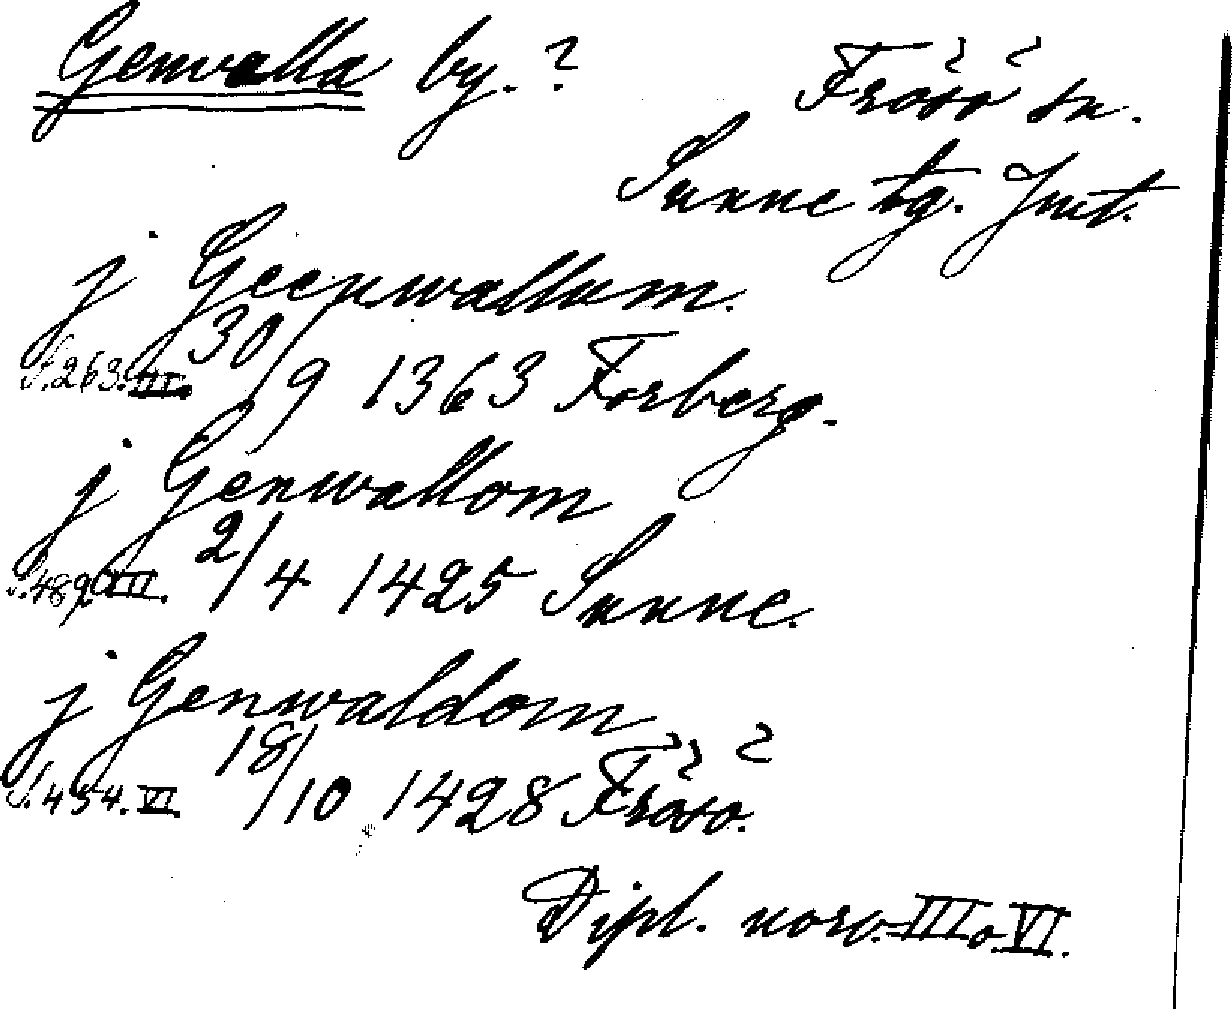 Genvalla by.? Frösö sn.
Sunne tg. Jmt.
j Geenwallum.
S. 263. III. 30/9 1363 Forberg.
j Genwallom
S. 489. III. 2/4 1425 Sunne.
j Genwaldom
S. 454. VI. 18/10 1428 Frösö.
Dipl. norv. III o. VI.